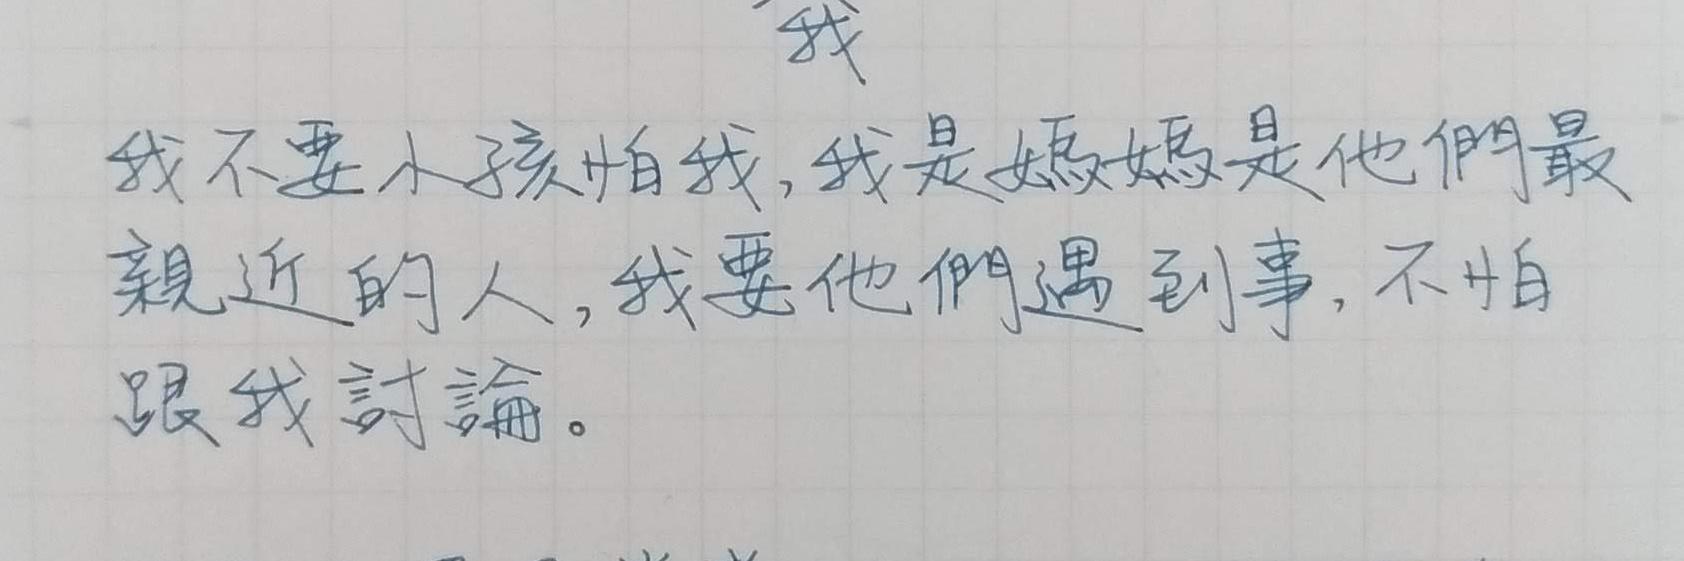 我
我不要小孩怕我,我是媽媽是他們最
親近的人,我要他們遇到事,不怕
跟我討論。